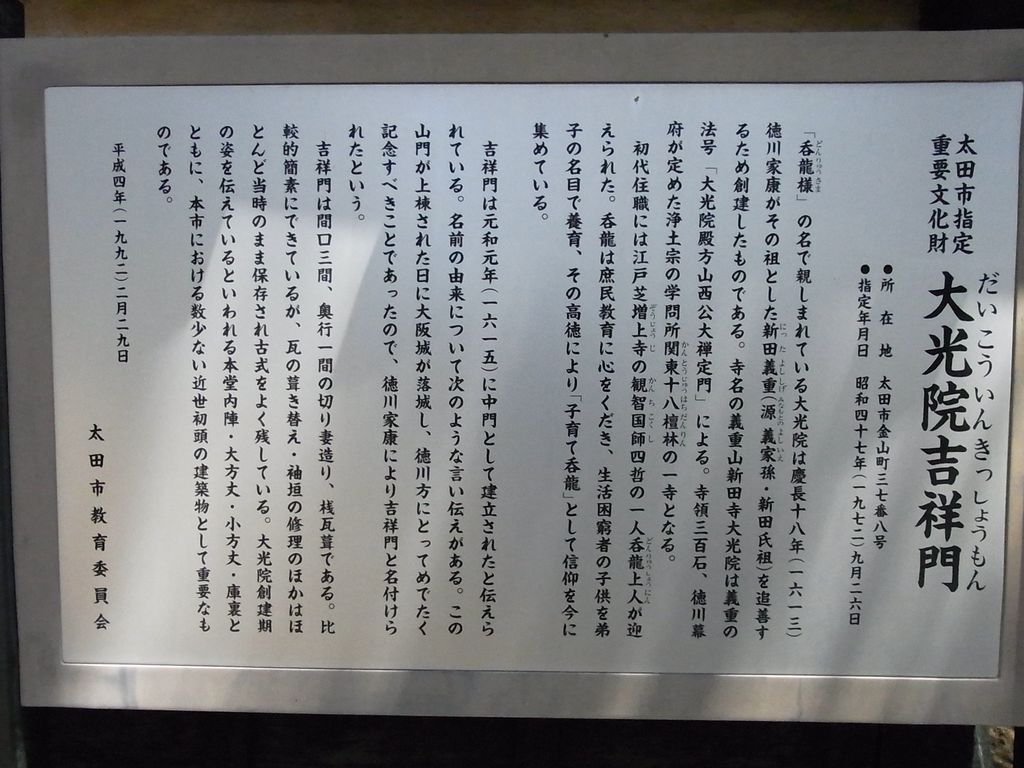 太田市指定
重要文化財
だいこういんきっしょうもん
大光院吉祥門
●所在地 太田市金山町三七番八号
●指定年月日 昭和四十七年(一九七二)九月二六日
「呑龍様」の名で親しまれている大光院は慶長十八年(一六一三)
徳川家康がその祖とした新田義重(源義家孫・新田氏祖)を追善す
るため創建したものである。寺名の義重山新田寺大光院は義重の
法号「大光院殿方山西公大禅定門」による。寺領三百石、徳川幕
府が定めた浄土宗の学問所関東十八檀林の一寺となる。
初代住職には江戸芝増上寺の観智国師四哲の一人呑龍上人が迎
えられた。呑龍は庶民教育に心をくだき、生活困窮者の子供を弟
子の名目で養育、その高徳により「子育て呑龍」として信仰を今に
集めている。
吉祥門は元和元年(一六一五)に中門として建立されたと伝えら
れている。名前の由来について次のような言い伝えがある。この
山門が上棟された日に大阪城が落城し、徳川方にとってめでたく
記念すべきことであったので、徳川家康により吉祥門と名付けら
れたという。
吉祥門は間口三間、奥行一間の切り妻造り、桟瓦葺である。比
較的簡素にできているが、瓦の葺き替え・袖垣の修理のほかはほ
とんど当時のまま保存され古式をよく残している。大光院創建期
の姿を伝えているといわれる本堂内陣・大方丈・小方丈・庫裏と
ともに、本市における数少ない近世初頭の建築物として重要なも
のである。
平成四年(一九九二)二月二九日
太田市教育委員会